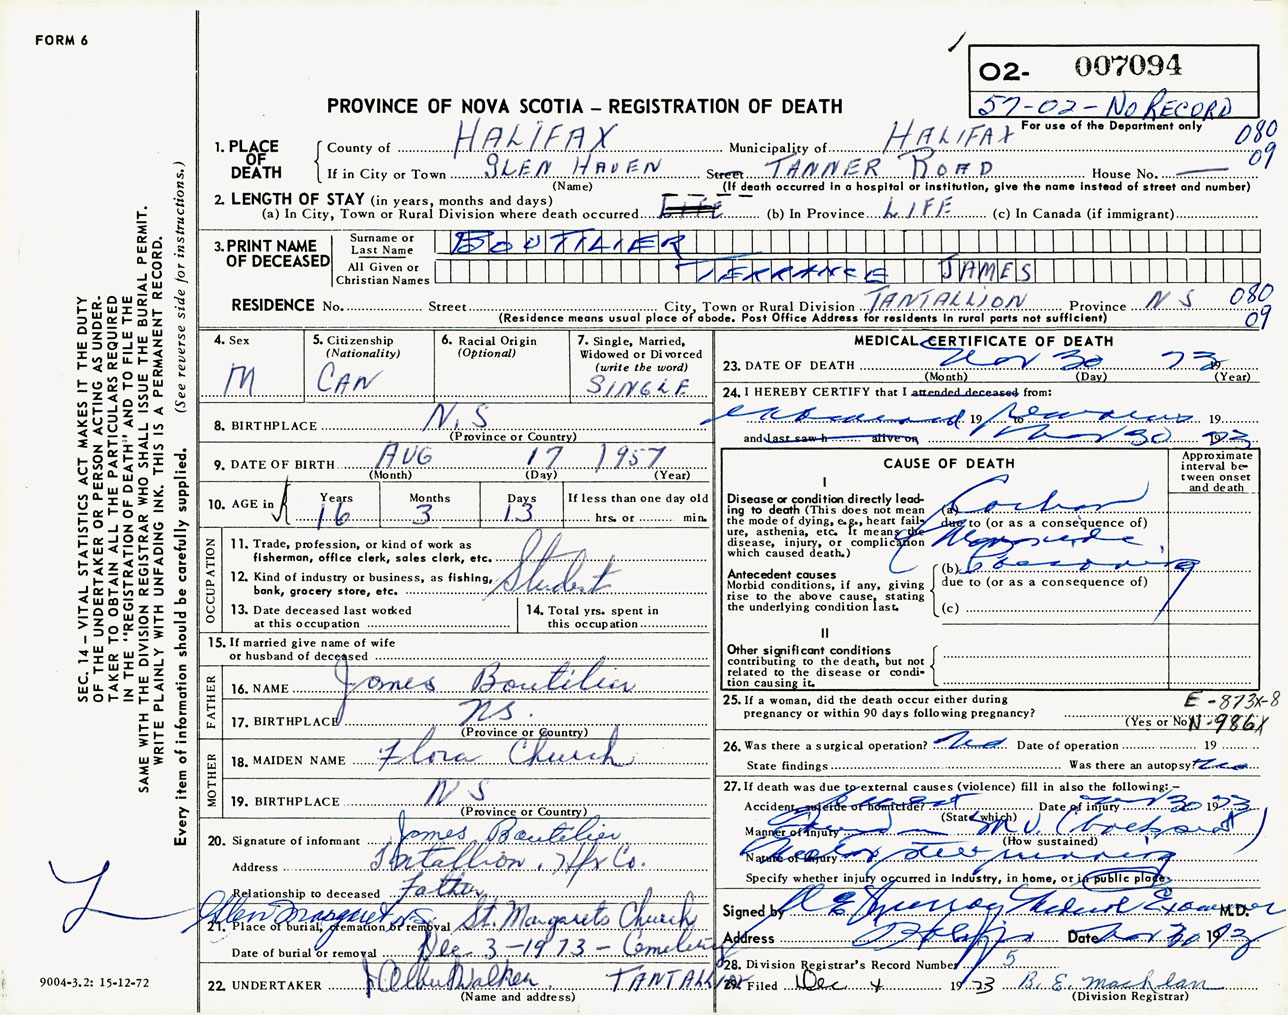 FORM 6
O2- 007094
57-02-NO RECORD
For use of the Department only
080
09
PROVINCE OF NOVA SCOTIA – REGISTRATION OF DEATH
1. PLACE OF DEATH
County of HALIFAX Municipality of HALIFAX
If in City or Town GLEN HAVEN Street TANNER ROAD House No. —
(Name) (If death occurred in a hospital or institution, give the name instead of street and number)
2. LENGTH OF STAY (in years, months and days)
(a) In City, Town or Rural Division where death occurred LIFE (b) In Province LIFE (c) In Canada (if immigrant)
3. PRINT NAME OF DECEASED
Surname or Last Name BOUTILIER
All Given or Christian Names TERRANCE JAMES
RESIDENCE No. Street City, Town or Rural Division TANTALLION Province N S 080
09
(Residence means usual place of abode. Post Office Address for residents in rural parts not sufficient)
4. Sex M
5. Citizenship (Nationality) CAN
6. Racial Origin (Optional)
7. Single, Married, Widowed or Divorced (write the word) SINGLE
8. BIRTHPLACE N.S
(Province or Country)
9. DATE OF BIRTH AUG 17 1957
(Month) (Day) (Year)
10. AGE in Years 16 Months 3 Days 13 If less than one day old hrs. or min.
OCCUPATION
11. Trade, profession, or kind of work as fisherman, office clerk, sales clerk, etc.
12. Kind of industry or business, as fishing, bank, grocery store, etc.
Student
13. Date deceased last worked at this occupation
14. Total yrs. spent in this occupation
15. If married give name of wife or husband of deceased
FATHER
16. NAME James Boutilier
17. BIRTHPLACE NS.
(Province or Country)
MOTHER
18. MAIDEN NAME Flora Church
19. BIRTHPLACE N S
(Province or Country)
20. Signature of informant James Boutilier
Address Tantallion, Hfx Co.
Relationship to deceased Father
21. Place of burial, cremation or removal St. Margarets Church
Glen Margaret
Date of burial or removal Dec 3-1973 - Cemetery
22. UNDERTAKER Walker TANTALLION
(Name and address)
MEDICAL CERTIFICATE OF DEATH
23. DATE OF DEATH Nov 30 73
(Month) (Day) (Year)
24. I HEREBY CERTIFY that I attended deceased from:
examined 19 to remains 19
and last saw h alive on Nov 30 1973
CAUSE OF DEATH
Approximate interval between onset and death
I
Disease or condition directly leading to death (This does not mean the mode of dying, e.g., heart failure, asthenia, etc. It means the disease, injury, or complication which caused death.)
(a) Carbon
due to (or as a consequence of)
Monoxide
(b) Poisoning
Antecedent causes
Morbid conditions, if any, giving rise to the above cause, stating the underlying condition last.
due to (or as a consequence of)
(c)
II
Other significant conditions contributing to the death, but not related to the disease or condition causing it.
25. If a woman, did the death occur either during pregnancy or within 90 days following pregnancy?
(Yes or No)
E-873X-8
N-986X
26. Was there a surgical operation? No Date of operation 19
State findings Was there an autopsy?
27. If death was due to external causes (violence) fill in also the following:–
Accident, suicide or homicide? Accident Date of injury Nov 30 1973
(State which)
Manner of injury M V.
(How sustained)
Nature of injury
Specify whether injury occurred in Industry, in home, or in public place
Signed by Murray Medical Examiner M.D.
Address Halifax Date Nov 30 1973
28. Division Registrar's Record Number 5
29. Filed Dec 4 1973 B. E. MacLean
(Division Registrar)
SEC. 14 – VITAL STATISTICS ACT MAKES IT THE DUTY
OF THE UNDERTAKER OR PERSON ACTING AS UNDERTAKER
TO OBTAIN ALL THE PARTICULARS REQUIRED
IN THE "REGISTRATION OF DEATH" AND TO FILE THE
SAME WITH THE DIVISION REGISTRAR WHO SHALL ISSUE THE BURIAL PERMIT.
WRITE PLAINLY WITH UNFADING INK. THIS IS A PERMANENT RECORD.
Every item of information should be carefully supplied. (See reverse side for instructions.)
9004-3.2: 15-12-72